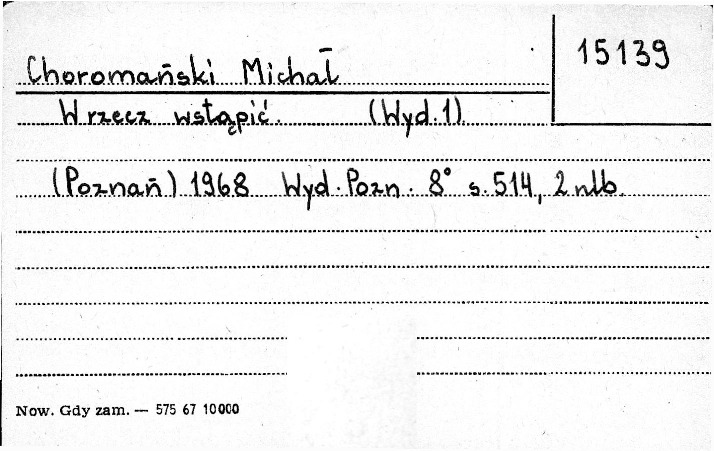 15139
Choromański Michał
W rzecz wstąpić. (Wyd. 1)
(Poznań) 1968 Wyd. Pozn. 8° s. 514, 2 nlb.
Now. Gdy zam. — 575 67 10000